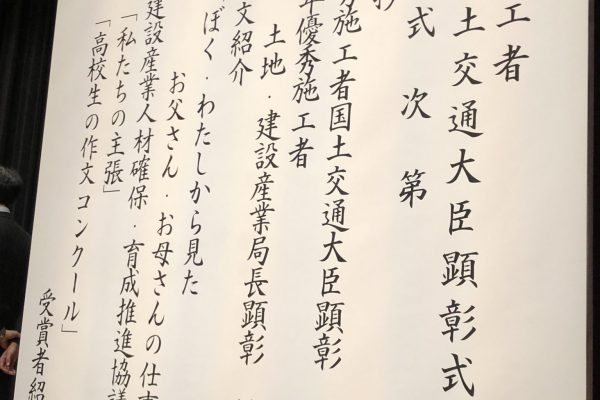 工者
土交通大臣顕彰式
式次第
秀施工者国土交通大臣顕彰
年優秀施工者
土地・建設産業局長顕彰
文紹介
ぼく・わたしから見た
お父さん・お母さんの仕事
建設産業人材確保・育成推進協議
「私たちの主張」
「高校生の作文コンクール」
受賞者紹